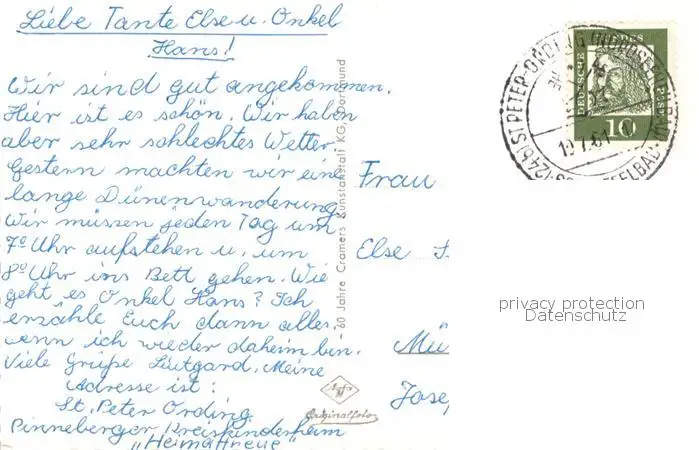 Liebe Tante Else u. Onkel
Hans!
Wir sind gut angekommen.
Hier ist es schön. Wir haben
aber sehr schlechtes Wetter.
Gestern machten wir eine
lange Dünenwanderung.
Wir müssen jeden Tag um
7⁰ Uhr aufstehen u. um
8⁰ Uhr ins Bett gehen. Wie
geht es Onkel Hans? Ich
erzähle Euch dann alles,
wenn ich wieder daheim bin.
Viele Grüße Lütgard. Meine
Adresse ist:
St. Peter Ording
Pinneberger Kreiskinderheim
"Heimattreue"
60 Jahre Cramers Kunstanstalt KG, Dortmund
Agfa
Originalfoto
Frau
Else
Mü
Jose
DEUTSCHE BUNDESPOST
10
(24b) ST PETER-ORDING (NORDSEE
19.7.61
privacy protection
Datenschutz